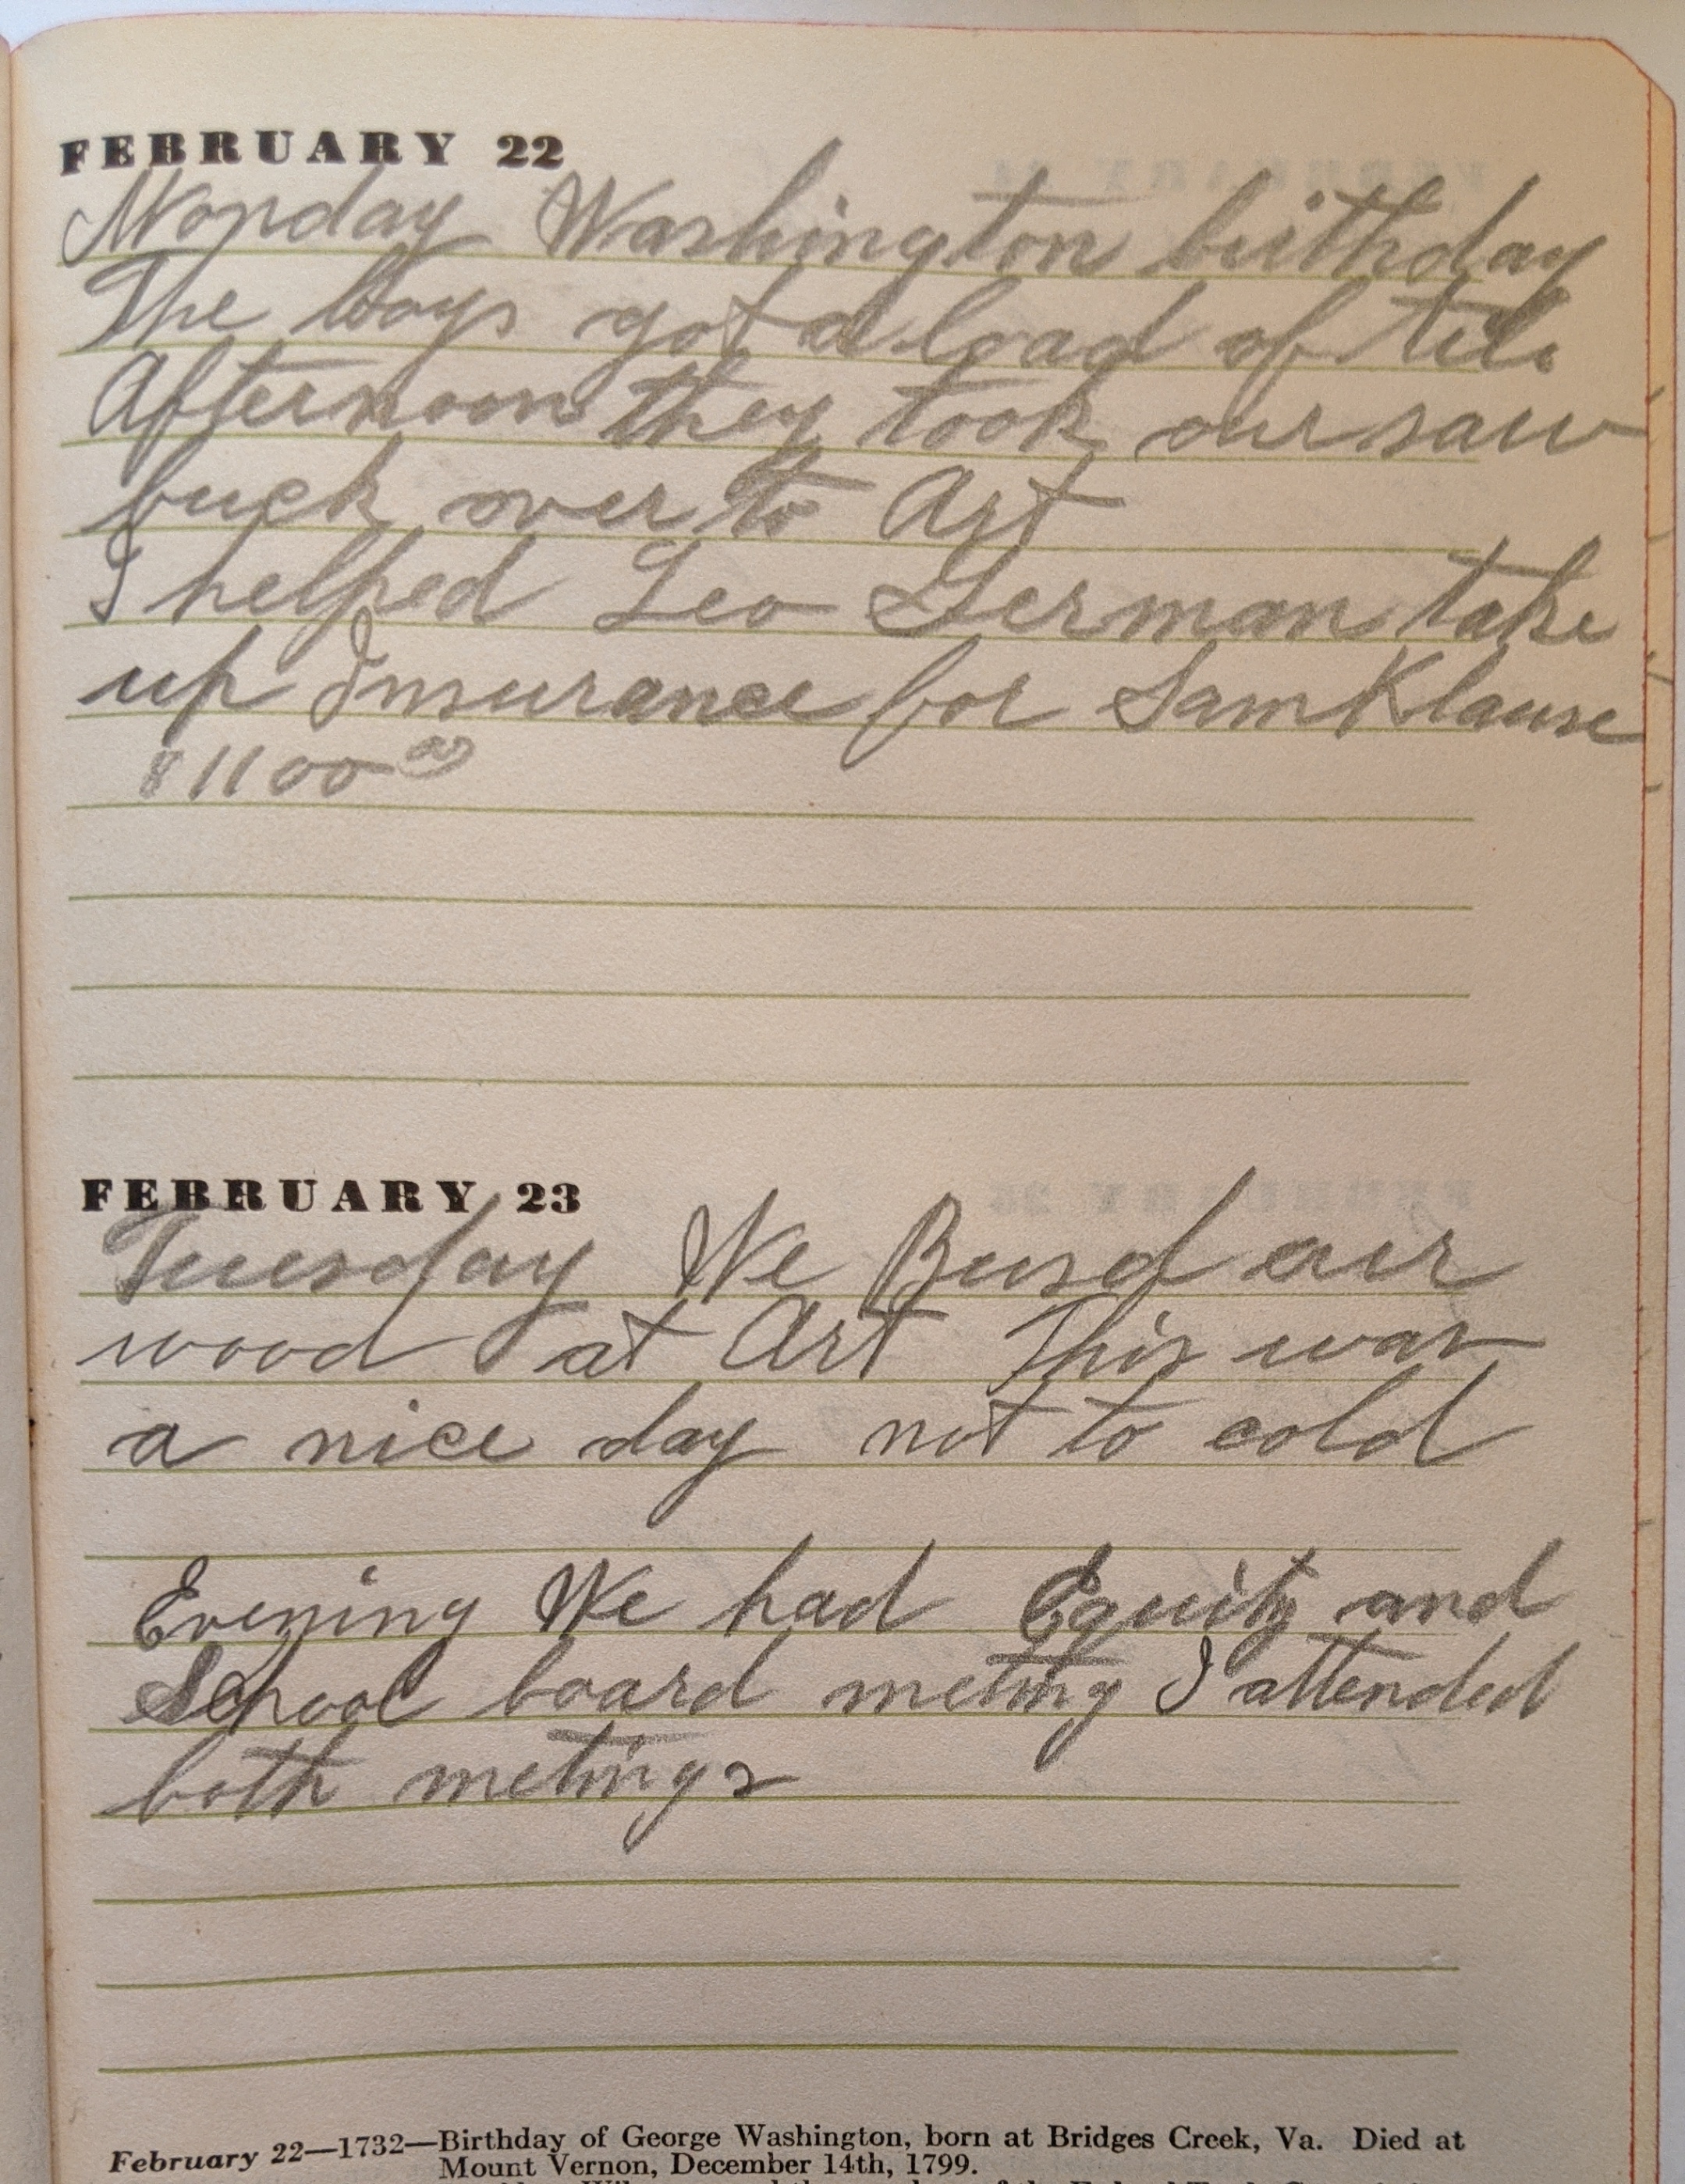 FEBRUARY 22
Monday Washington birthday
The boys got a load of tile
Afternoon they took our saw
buck over to Art
I helped Leo German take
up Insurance for Sam Klause
$1100 00
FEBRUARY 23
Tuesday We Busd our
wood at Art This was
a nice day not to cold
Evening We had Equity and
School board meting I attended
both metings
February 22—1732—Birthday of George Washington, born at Bridges Creek, Va. Died at
Mount Vernon, December 14th, 1799.